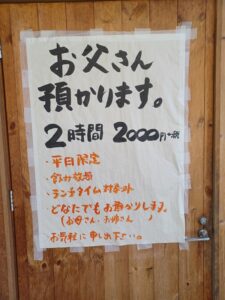 お父さん
預かります。
2時間 2000円+税
・平日限定
・飲み放題
・ランチタイム対象外
どなたでもお預かりします。
(お母さん、お姉さん)
お気軽に申し下さい。